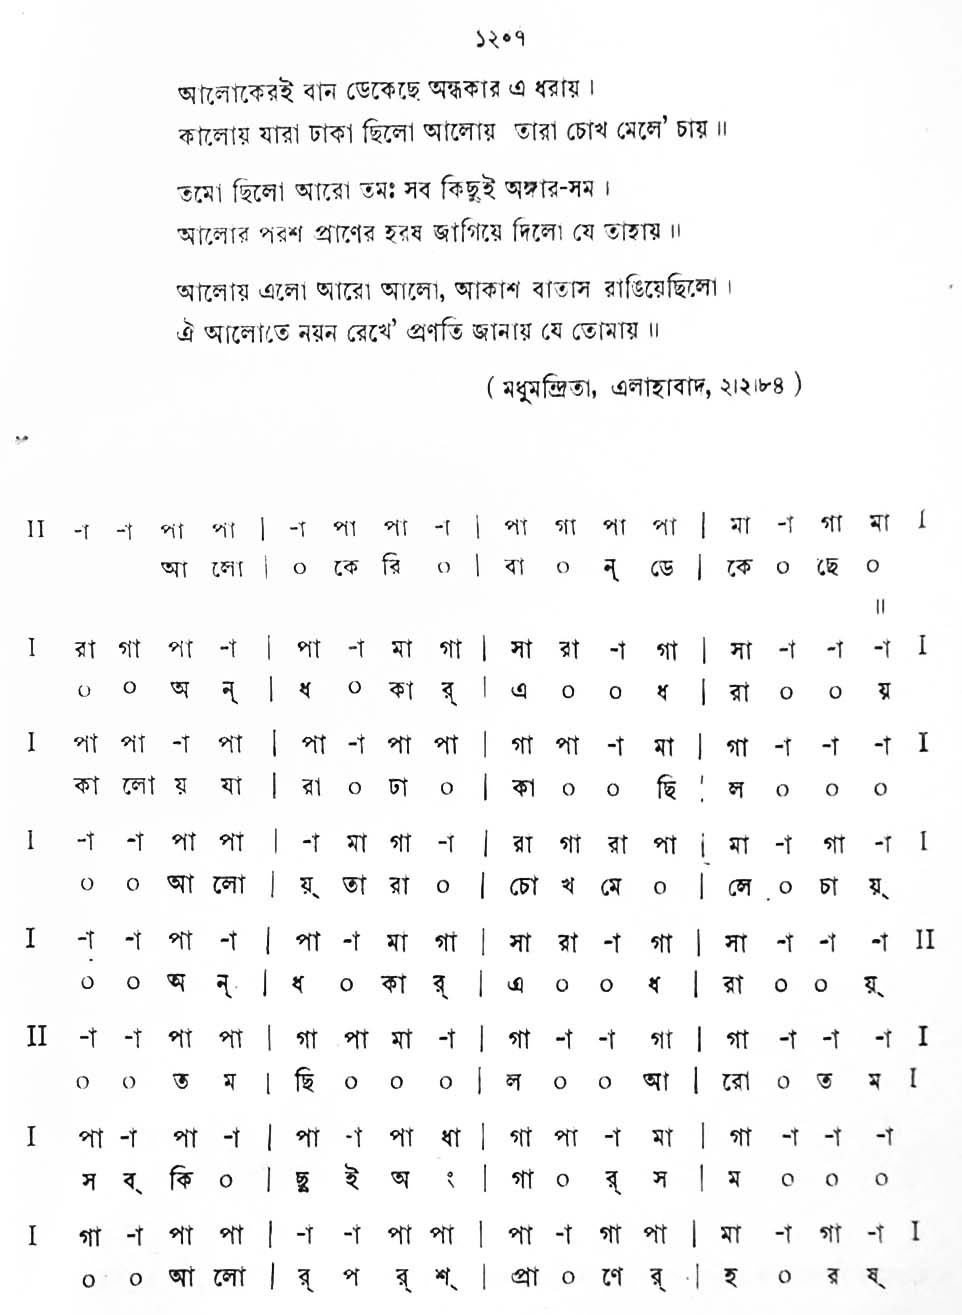 ১২০৭
আলোকেরই বান ডেকেছে অন্ধকার এ ধরায় ।
কালোয় যারা ঢাকা ছিলো আলোয় তারা চোখ মেলে' চায় ॥
তমো ছিলো আরো তমঃ সব কিছুই অঙ্গার-সম ।
আলোর পরশ প্রাণের হরষ জাগিয়ে দিলো যে তাহায় ॥
আলোয় এলো আরো আলো, আকাশ বাতাস রাঙিয়েছিলো ।
ঐ আলোতে নয়ন রেখে' প্রণতি জানায় যে তোমায় ॥
( মধুমন্দ্রিতা, এলাহাবাদ, ২।২।৮৪ )
II -া -া পা পা | -া পা পা -া | পা গা পা পা | মা -া গা মা I
আ লো | ০ কে রি ০ | বা ০ ন্ ডে | কে ০ ছে ০
॥
I রা গা পা -া | পা -া মা গা | সা রা -া গা | সা -া -া -া I
০ ০ অ ন্ | ধ ০ কা র্ | এ ০ ০ ধ | রা ০ ০ য়
I পা পা -া পা | পা -া পা পা | গা পা -া মা | গা -া -া -া I
কা লো য় যা | রা ০ ঢা ০ | কা ০ ০ ছি | ল ০ ০ ০
I -া -া পা পা | -া মা গা -া | রা গা রা পা | মা -া গা -া I
০ ০ আ লো | য়্ তা রা ০ | চো খ মে ০ | লে ০ চা য়্
I -া -া পা -া | পা -া মা গা | সা রা -া গা | সা -া -া -া II
০ ০ অ ন্ | ধ ০ কা র্ | এ ০ ০ ধ | রা ০ ০ য়্
II -া -া পা পা | গা পা মা -া | গা -া -া গা | গা -া -া -া I
০ ০ ত ম | ছি ০ ০ ০ | ল ০ ০ আ | রো ০ ত ম I
I পা -া পা -া | পা -া পা ধা | গা পা -া মা | গা -া -া -া
স ব্ কি ০ | ছু ই অ ং | গা ০ র্ স | ম ০ ০ ০
I গা -া পা পা | -া -া পা পা | পা -া গা পা | মা -া গা -া I
০ ০ আ লো | র্ প র্ শ্ | প্রা ০ ণে র্ | হ ০ র ষ্